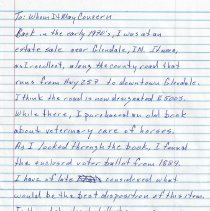 To: Whom It May Concern
Back in the early 1970's, I was at an
estate sale near Glendale, IN. It was,
as I recollect, along the county road that
runs from Hwy 257 to downtown Glendale.
I think the road is now designated
While there, I purchased an old book
about veterinary care of horses.
As I looked through the book, I found
the enclosed voter ballot from 1884.
I have of late considered what
would be the best disposition of this item.